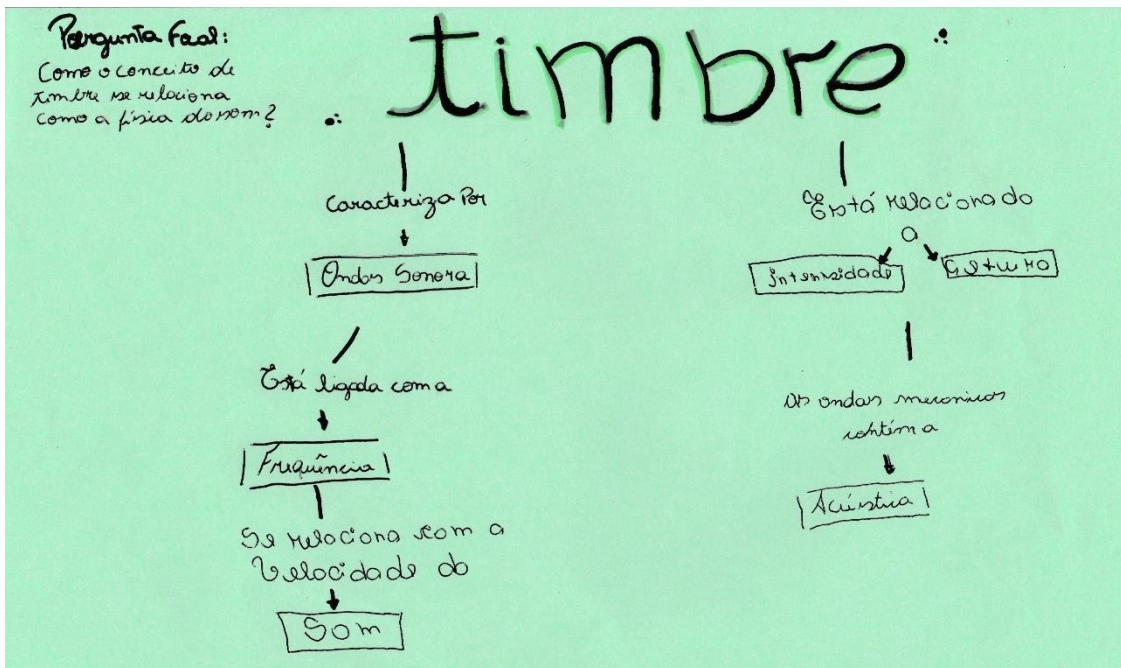 Pergunta Focal:
Como o conceito de
timbre se relaciona
como a física do som?
timbre
Caracteriza Por
Ondas Sonora
Está ligada com a
Frequência
Se relaciona com a
Velocidade do
Som
Está relacionado
a
Intensidade
As ondas mecanicas
contém a
Acústica